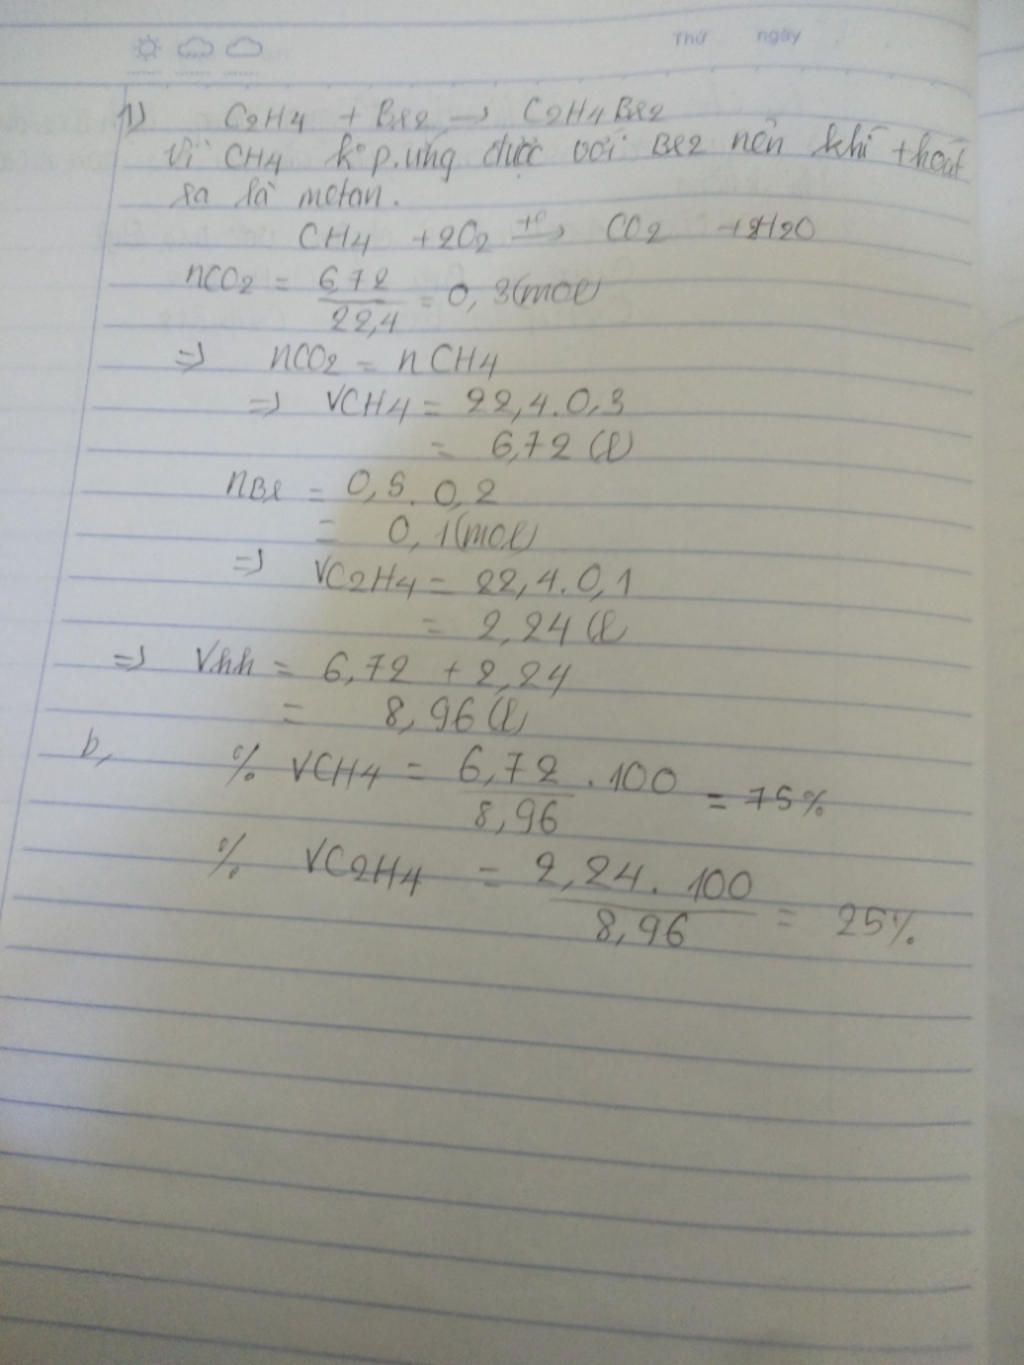 Thứ ngày
1) C2H4 + Br2 → C2H4Br2
Vì CH4 ko p.ứng được với Br2 nên khí thoát
ra là metan.
CH4 + 2O2 -t°-> CO2 + 2H2O
nCO2 = 6,72/22,4 = 0,3(mol)
=> nCO2 = nCH4
=> VCH4 = 22,4.0,3
= 6,72 (l)
nBr = 0,5.0,2
= 0,1(mol)
=> VC2H4 = 22,4.0,1
= 2,24 (l)
=> Vhh = 6,72 + 2,24
= 8,96 (l)
b, % VCH4 = 6,72/8,96 .100 = 75%
% VC2H4 = 2,24.100/8,96 = 25%